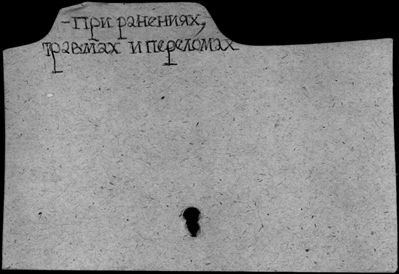 -При ранениях,
травмах и переломах